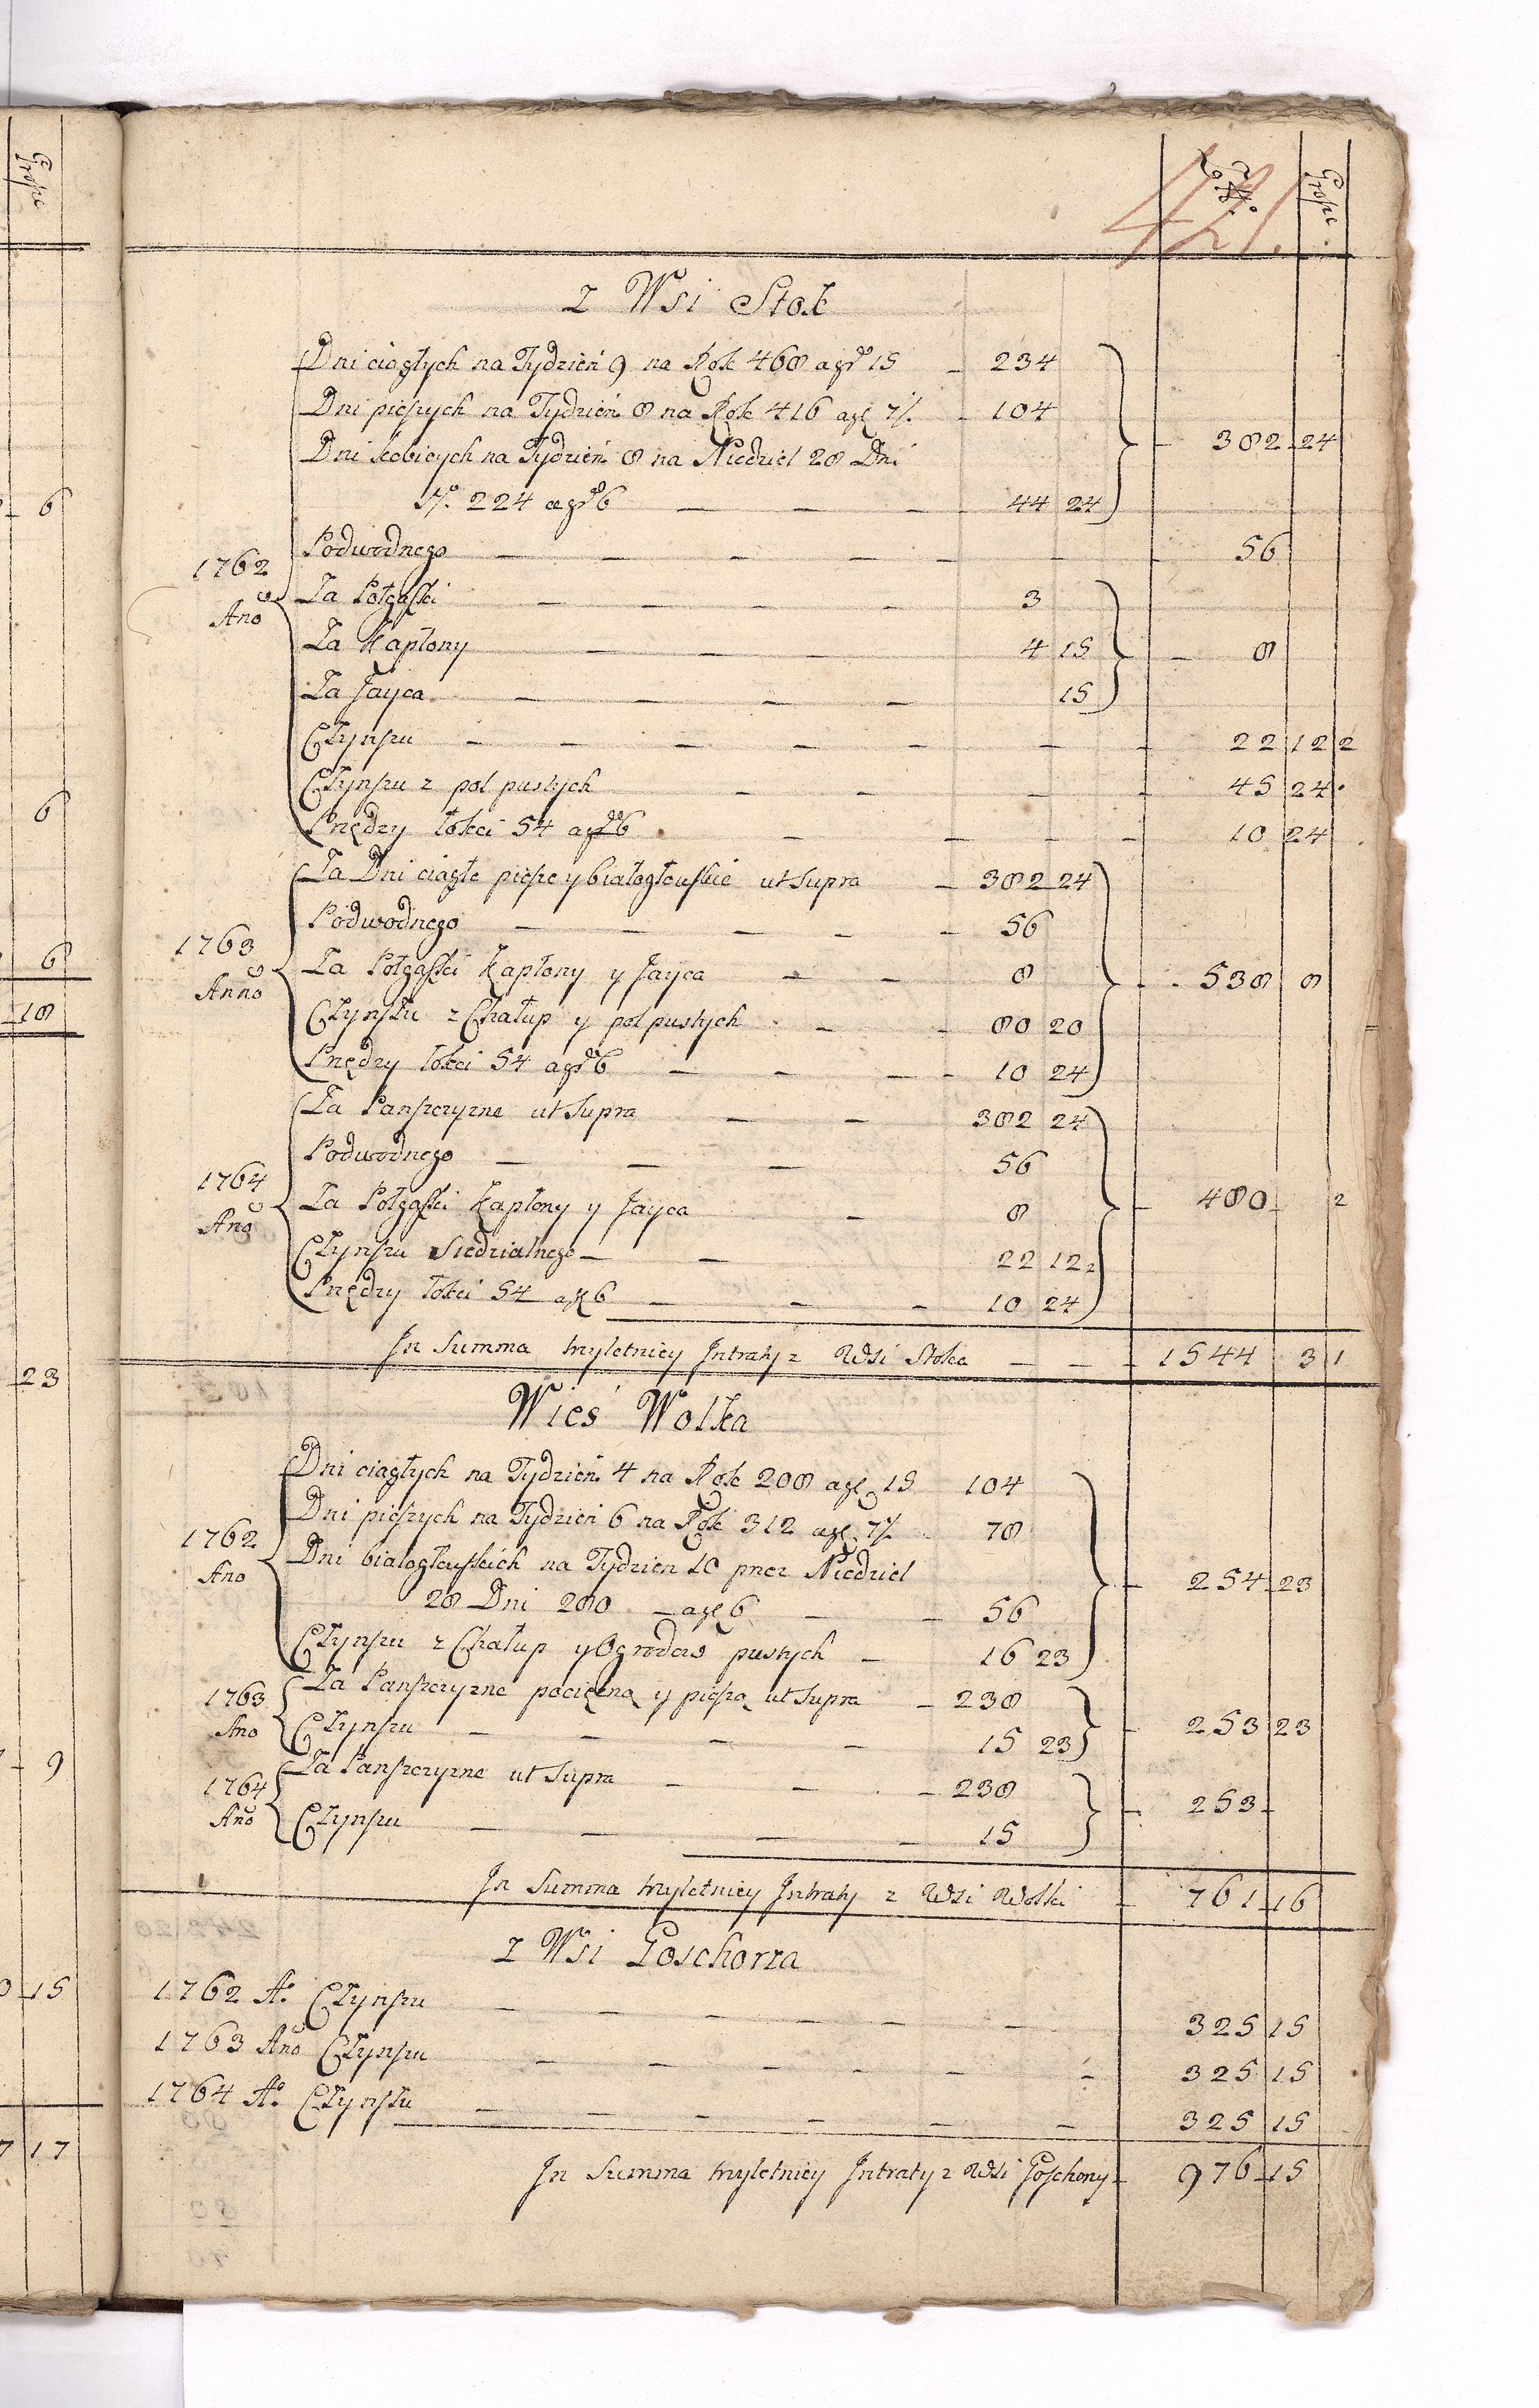 Grosze
6
6
6
18
23
9
15
7 17
421.
Zł: Grosze
z Wsi Stok
Dni ciągłych na Tydzień 9 na Rok 468 a gr 15 — 234
Dni pieszych na Tydzień 8 na Rok 416 a gr 7½ — 104
Dni kobicych na Tydzień 8 na Niedziel 28 Dni
No. 224 a gr 6 — — — 44 24 — 382 24
1762 Ano
Podwodnego — — — — — — 56
Za Półgąski — — — — 3
Za Kapłony — — — 4 15 — 8
Za Jayca — — — — 15
Czynszu — — — — — — — 22 12 2
Czynszu z pol pustych — — — — 45 24
Przędzy łokci 54 a gr 6 — — — 10 24
1763 Anno
Za Dni ciągłe piesze y białogłowskie ut Supra — 382 24
Podwodnego — — — — — 56
Za Półgąski Kapłony y Jayca — — 8 — 538 8
Czynszu z Chałup y pol pustych — — 80 20
Przędzy łokci 54 a gr 6 — — — — 10 24
1764 Ano
Za Panszczyzne ut Supra — — 382 24
Podwodnego — — — 56
Za Półgąski Kapłony y Jayca — 8 — 480 2
Czynszu Siedzialnego — — 22 12 2
Przędzy łokci 54 a gr 6 — — — 10 24
In Summa trzyletniey Intraty z Wsi Stoka — — — 1544 3 1
Wieś Wolka
Dni ciągłych na Tydzień 4 na Rok 208 a gr 15 104
Dni pieszych na Tydzień 6 na Rok 312 a gr 7½ 78
1762 Ano
Dni białogłowskich na Tydzien 10 przez Niedziel
28 Dni 280 — a gr 6 — — 56 — 254 23
Czynszu z Chałup y Ogrodow pustych — 16 23
1763 Ano
Za Panszczyzne pociężną y pieszą ut Supra — 238
Czynszu — — — — 15 23 — 253 23
1764 Ano
Za Panszczyzne ut Supra — — — 238
Czynszu — — — — 15 — 253
In Summa trzyletniey Intraty z Wsi Wolki — 761 16
z Wsi Goschorza
1762 Ao. Czynszu — — — — — — 325 15
1763 Ano Czynszu — — — — — — 325 15
1764 Ao. Czynszu — — — — — — 325 15
In Summa trzyletniey Intraty z Wsi Goschorzy — 976 15